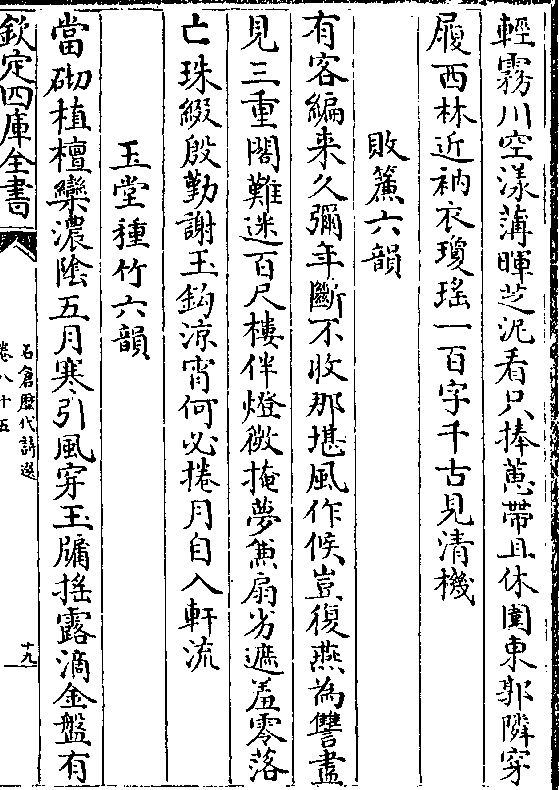 輕霧川空漾薄暉芝泥看只捧蕙帶且休圍東郭隣穿
履西林近衲衣瓊瑤一百字千古見清機
敗簾六韻
有客編来久彌年斷不收那堪風作候豈復燕為讐盡
見三重閣難迷百尺樓伴燈微掩夢兼扇劣遮羞零落
亡珠綴殷勤謝玉鈎凉宵何必捲月自入軒流
玉堂種竹六韻
當砌植檀欒濃陰五月寒引風穿玉牖揺露滴金盤有
欽定四庫全書
石倉歴代詩選
卷八十五
十九